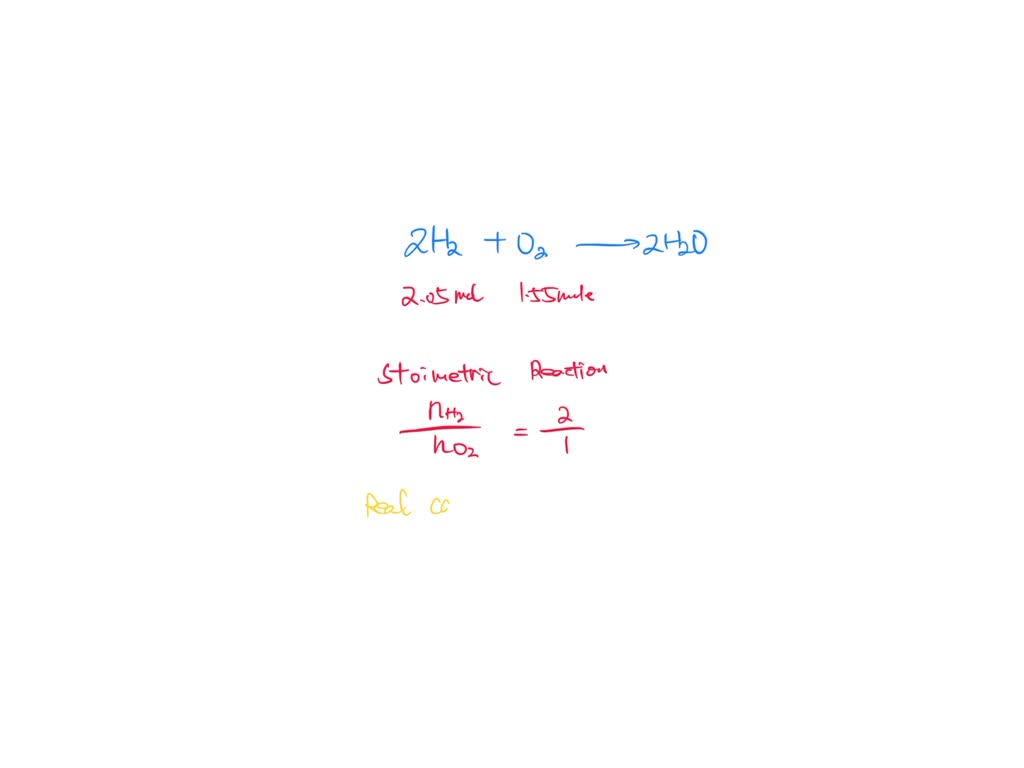 2H₂ + O₂ ⟶ 2H₂O
2.05 mol 1.55 mole
Stoimetric Reaction
nH₂ / nO₂ = 2 / 1
Real ca